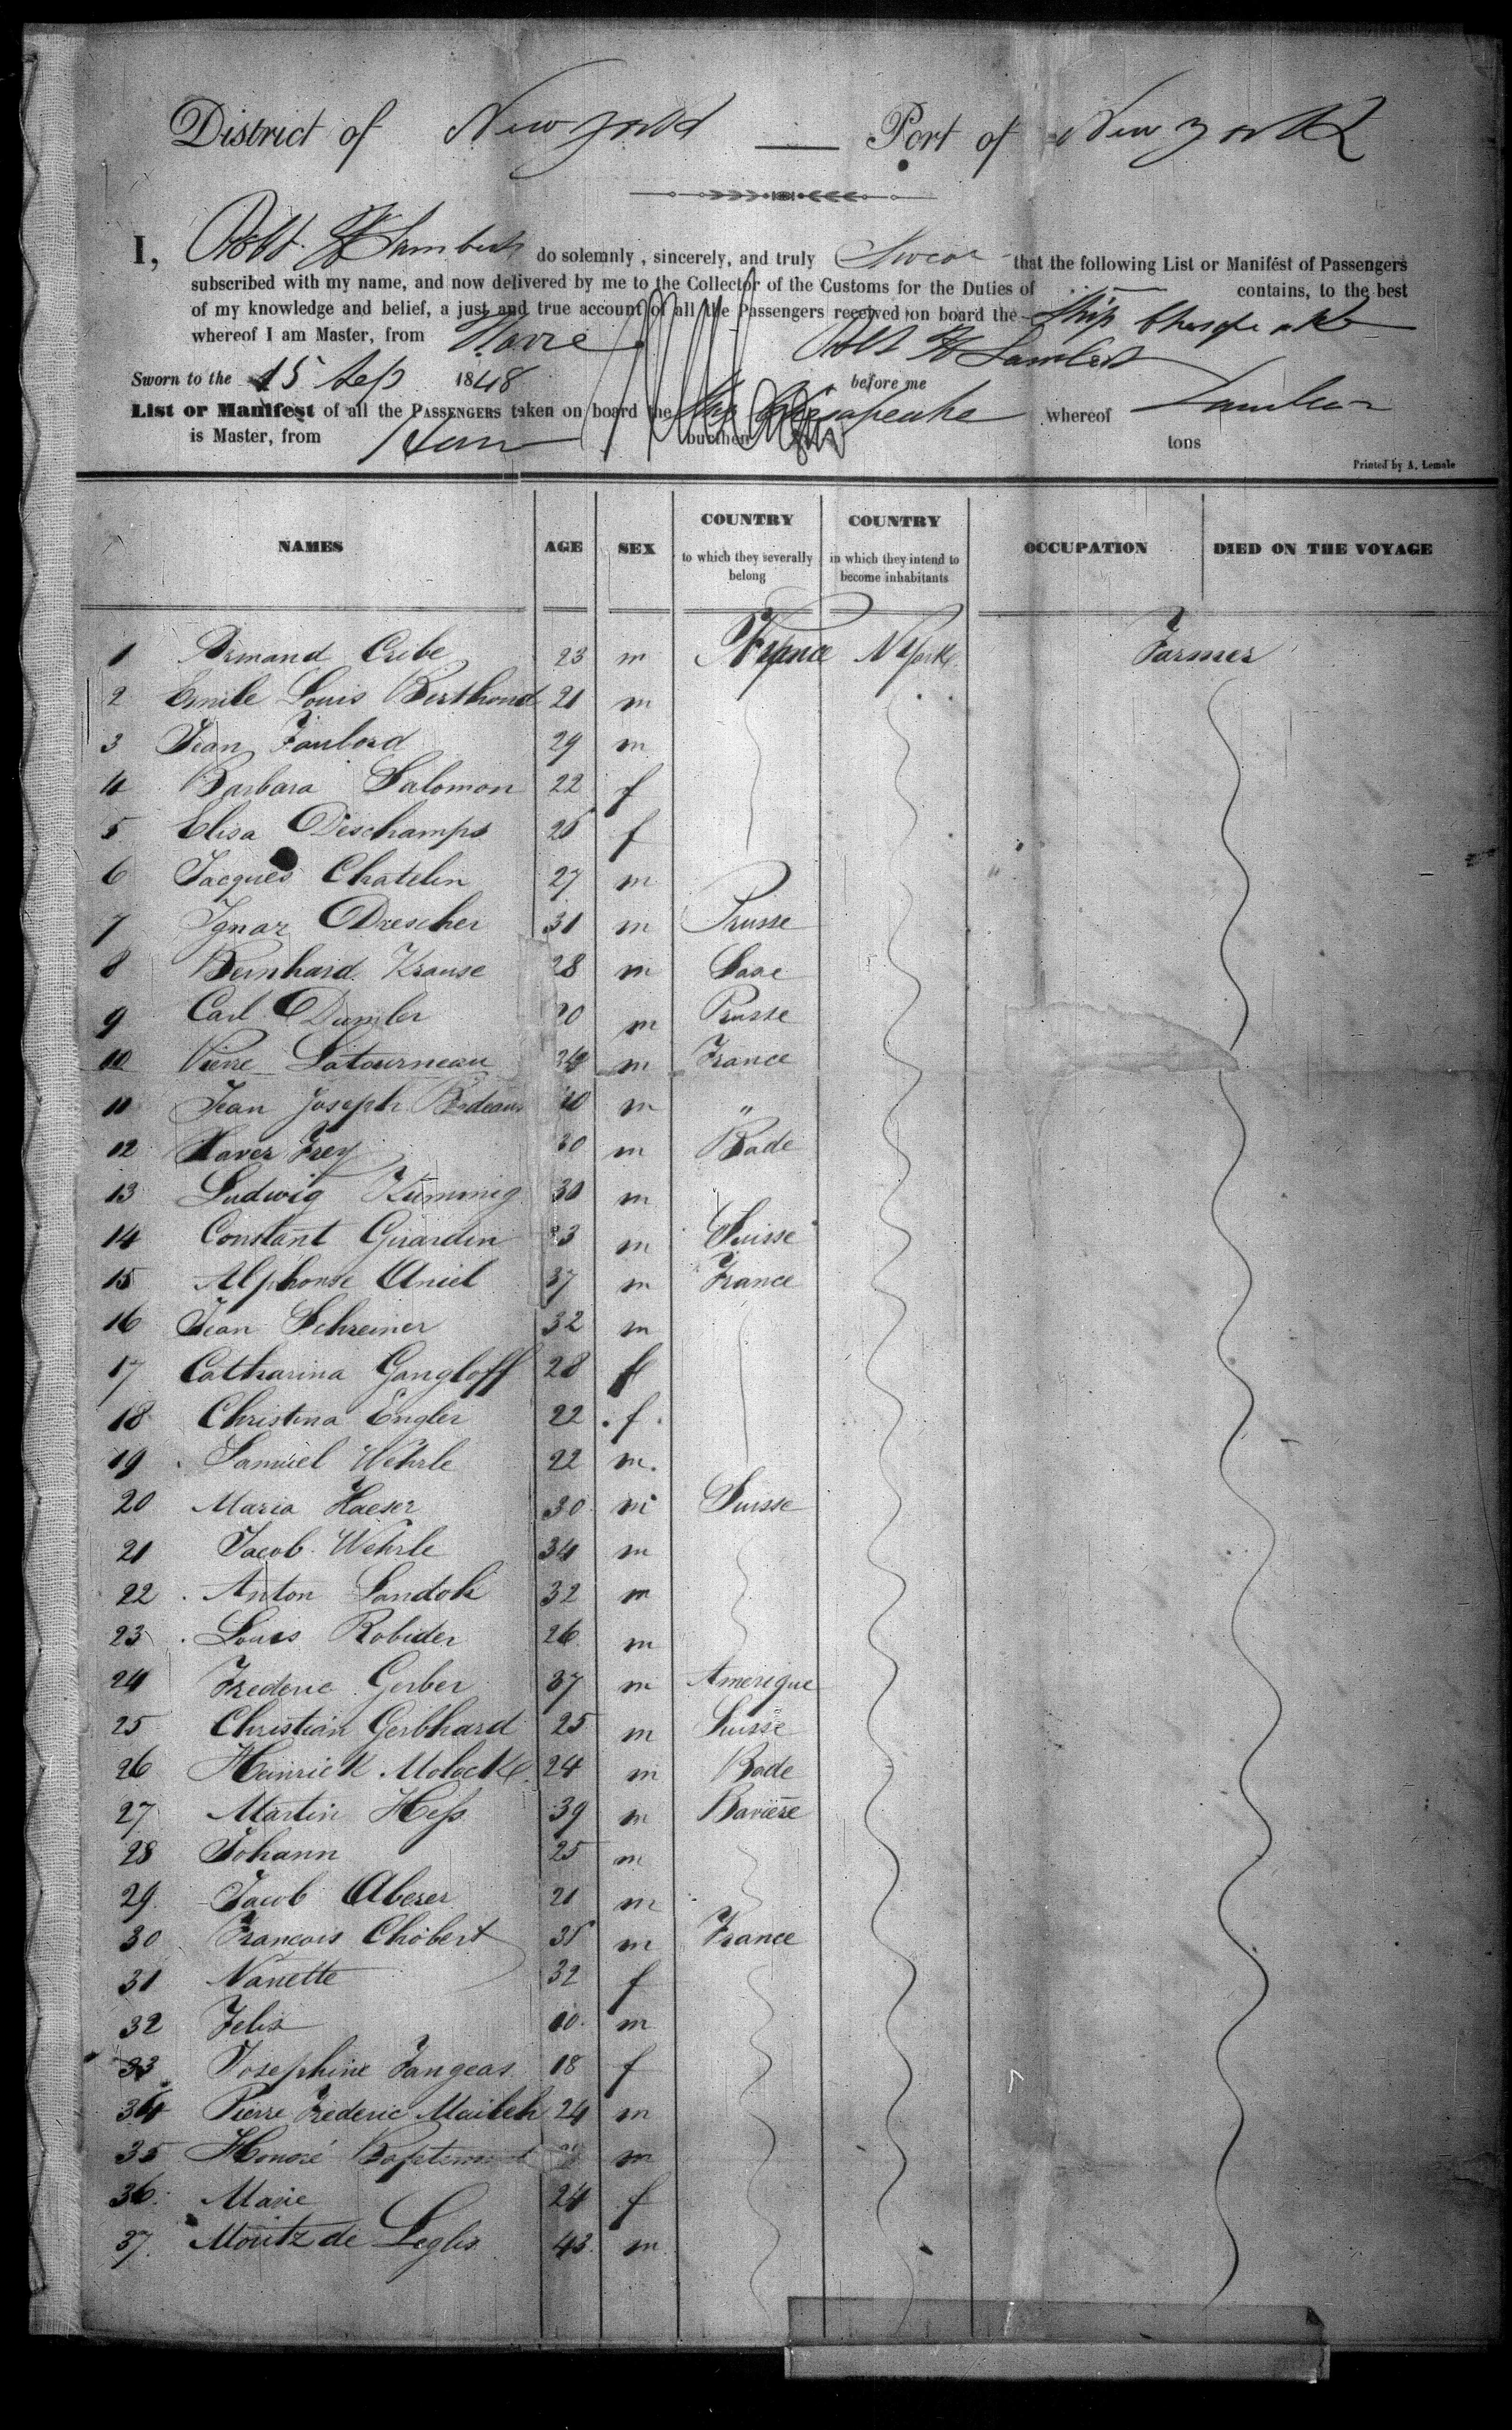 District of New York Port of New York
I, Robt H Lambert do solemnly, sincerely, and truly Swear that the following List or Manifést of Passengers
subscribed with my name, and now delivered by me to the Collector of the Customs for the Duties of contains, to the best
of my knowledge and belief, a just and true account of all the Passengers received on board the Ship Chesapeake
whereof I am Master, from Havre. Robt H Lambert
Sworn to the 15 Sep 1848 before me
List or Manifest of all the PASSENGERS taken on board the Ship Chesapeake whereof Lambert
is Master, from Havre burthen tons
Printed by A. Lemale
NAMES AGE SEX COUNTRY to which they severally belong COUNTRY in which they intend to become inhabitants OCCUPATION DIED ON THE VOYAGE
1 Armand Cribe 23 m France N York Farmer
2 Emile Louis Berthoud 21 m
3 Jean Faubord 29 m
4 Barbara Salomon 22 f
5 Elisa Deschamps 25 f
6 Jacques Chatelin 27 m
7 Ignaz Drescher 31 m Prusse
8 Bernhard Krause 28 m Saxe
9 Carl Dumler m Prusse
10 Pierre Latourneau 34 m France
11 Jean Joseph Bordeaux 40 m "
12 Xaver Frey 30 m Bade
13 Ludwig Kümmig 30 m
14 Constant Girardin 23 m Suisse
15 Alphonse Aniel 37 m France
16 Jean Schreiner 32 m
17 Catharina Gangloff 28 f
18 Christina Engler 22 f
19 Samuel Wehrle 22 m
20 Maria Haeser 30 m Suisse
21 Jacob Wehrle 34 m
22 Anton Landok 32 m
23 Louis Robider 26 m
24 Frederic Gerber 37 m Amerique
25 Christian Gerbhard 25 m Suisse
26 Heinrick Molocke 24 m Bade
27 Martin Hess 39 m Baviere
28 Johann 25 m
29 Jacob Aberer 21 m
30 Francois Chobert 35 m France
31 Nanette 32 f
32 Felix 10 m
33 Josephine Fangeas 18 f
34 Pierre Frederic Mailch 24 m
35 Honoré m
36 Marie 24 f
37 Moritz de Leglis 43 m